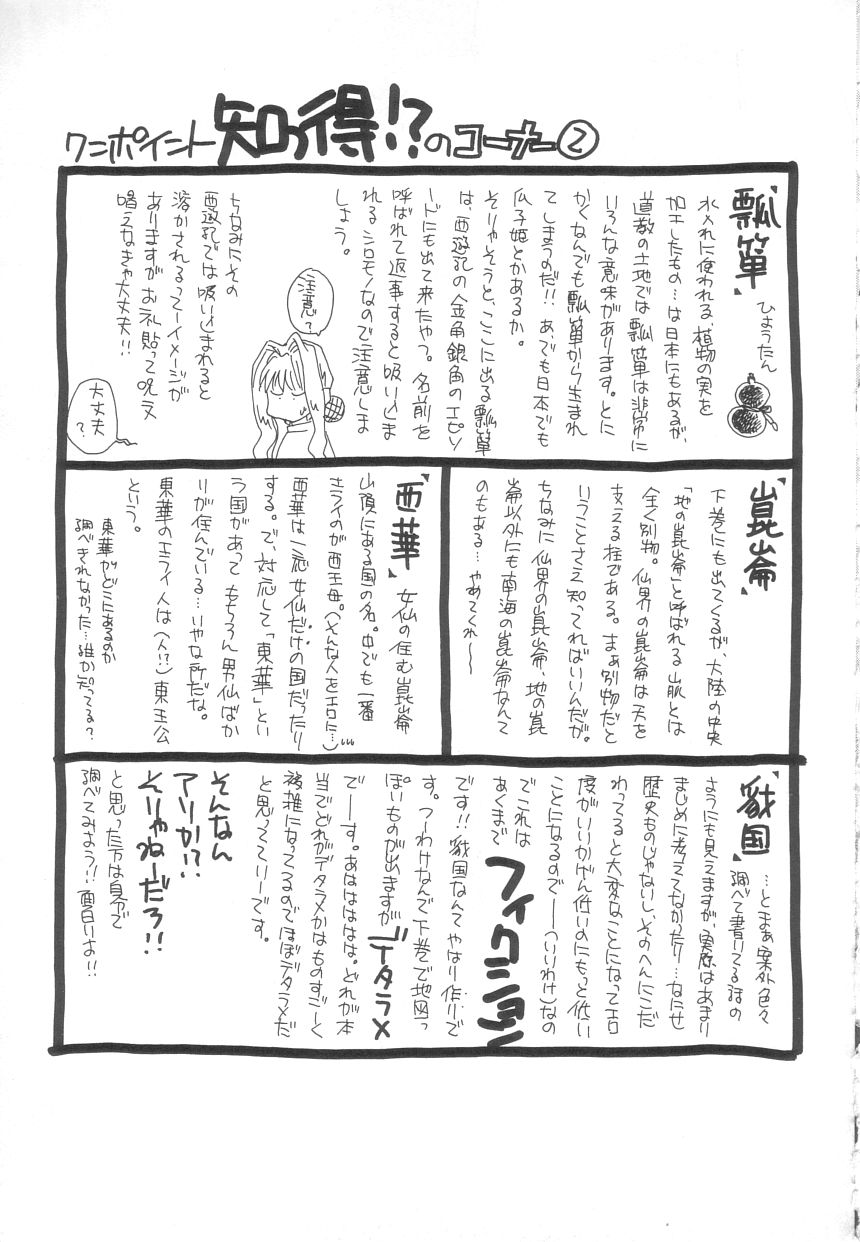 ワンポイント知っ得!?のコーナー②
瓢箪
ひょうたん
水入れに使われる、植物の実を
加工したもの…は日本にもあるが、
道教の土地では瓢箪は非常に
いろんな意味があります。とに
かくなんでも瓢箪から生まれ
てしまうのだ!! あ、でも日本でも
瓜子姫とかあるか。
そりゃそうと、ここに出る瓢箪
は、西遊記の金角銀角のエピソ
ードにも出て来たやつ。名前を
呼ばれて返事すると吸い込ま
れるシロモノなので注意しま
しょう。
注意?
ちなみにその
西遊記では吸い込まれると
溶かされるってーイメージが
ありますがお札貼って呪文
唱えなきゃ大丈夫!!
大丈夫?
崑崙
下巻にも出てくるが、大陸の中央
「地の崑崙」と呼ばれる山脈とは
全く別物。仙界の崑崙は天を
支える柱である。まぁ別物だと
いうことさえ知ってればいいんだが。
ちなみに仙界の崑崙、地の崑
崙以外にも南海の崑崙なんて
のもある…やめてくれ〜〜
西華
女仙の住む崑崙
山頂にある国の名。中でも一番
エライのが西王母。(そんな人をエロに…)
西華は一応女仙だけの国だったり
する。で、対応して「東華」とい
う国があって もちろん男仙ばか
りが住んでいる…いやな所だな。
東華のエライ人は(人!?)東王公
という。
東華がどこにあるのか
調べきれなかった…誰か知ってる?
国
…とまぁ案外色々
調べて書いてる話の
ようにも見えますが、実際はあまり
まじめに考えてなかったり…なにせ
歴史ものじゃないし、そのへんにこだ
わってると大変なことになってエロ
度がいいかげん低いのにもっと低い
ことになるので──(いいわけ)なの
でこれは
あくまで
フィクション
です!! 国なんてやはり作りで
す。つーわけなんで下巻で地図っ
ぽいものが出ますが デタラメ
でーす。あはははは。どれが本
当でどれがデタラメかはものすごーく
複雑になってるのでほぼデタラメだ
と思ってていーです。
そんなん
アリか!?
そりゃねーだろ!!
と思った方は自分で
調べてみよう!! 面白いよ!!